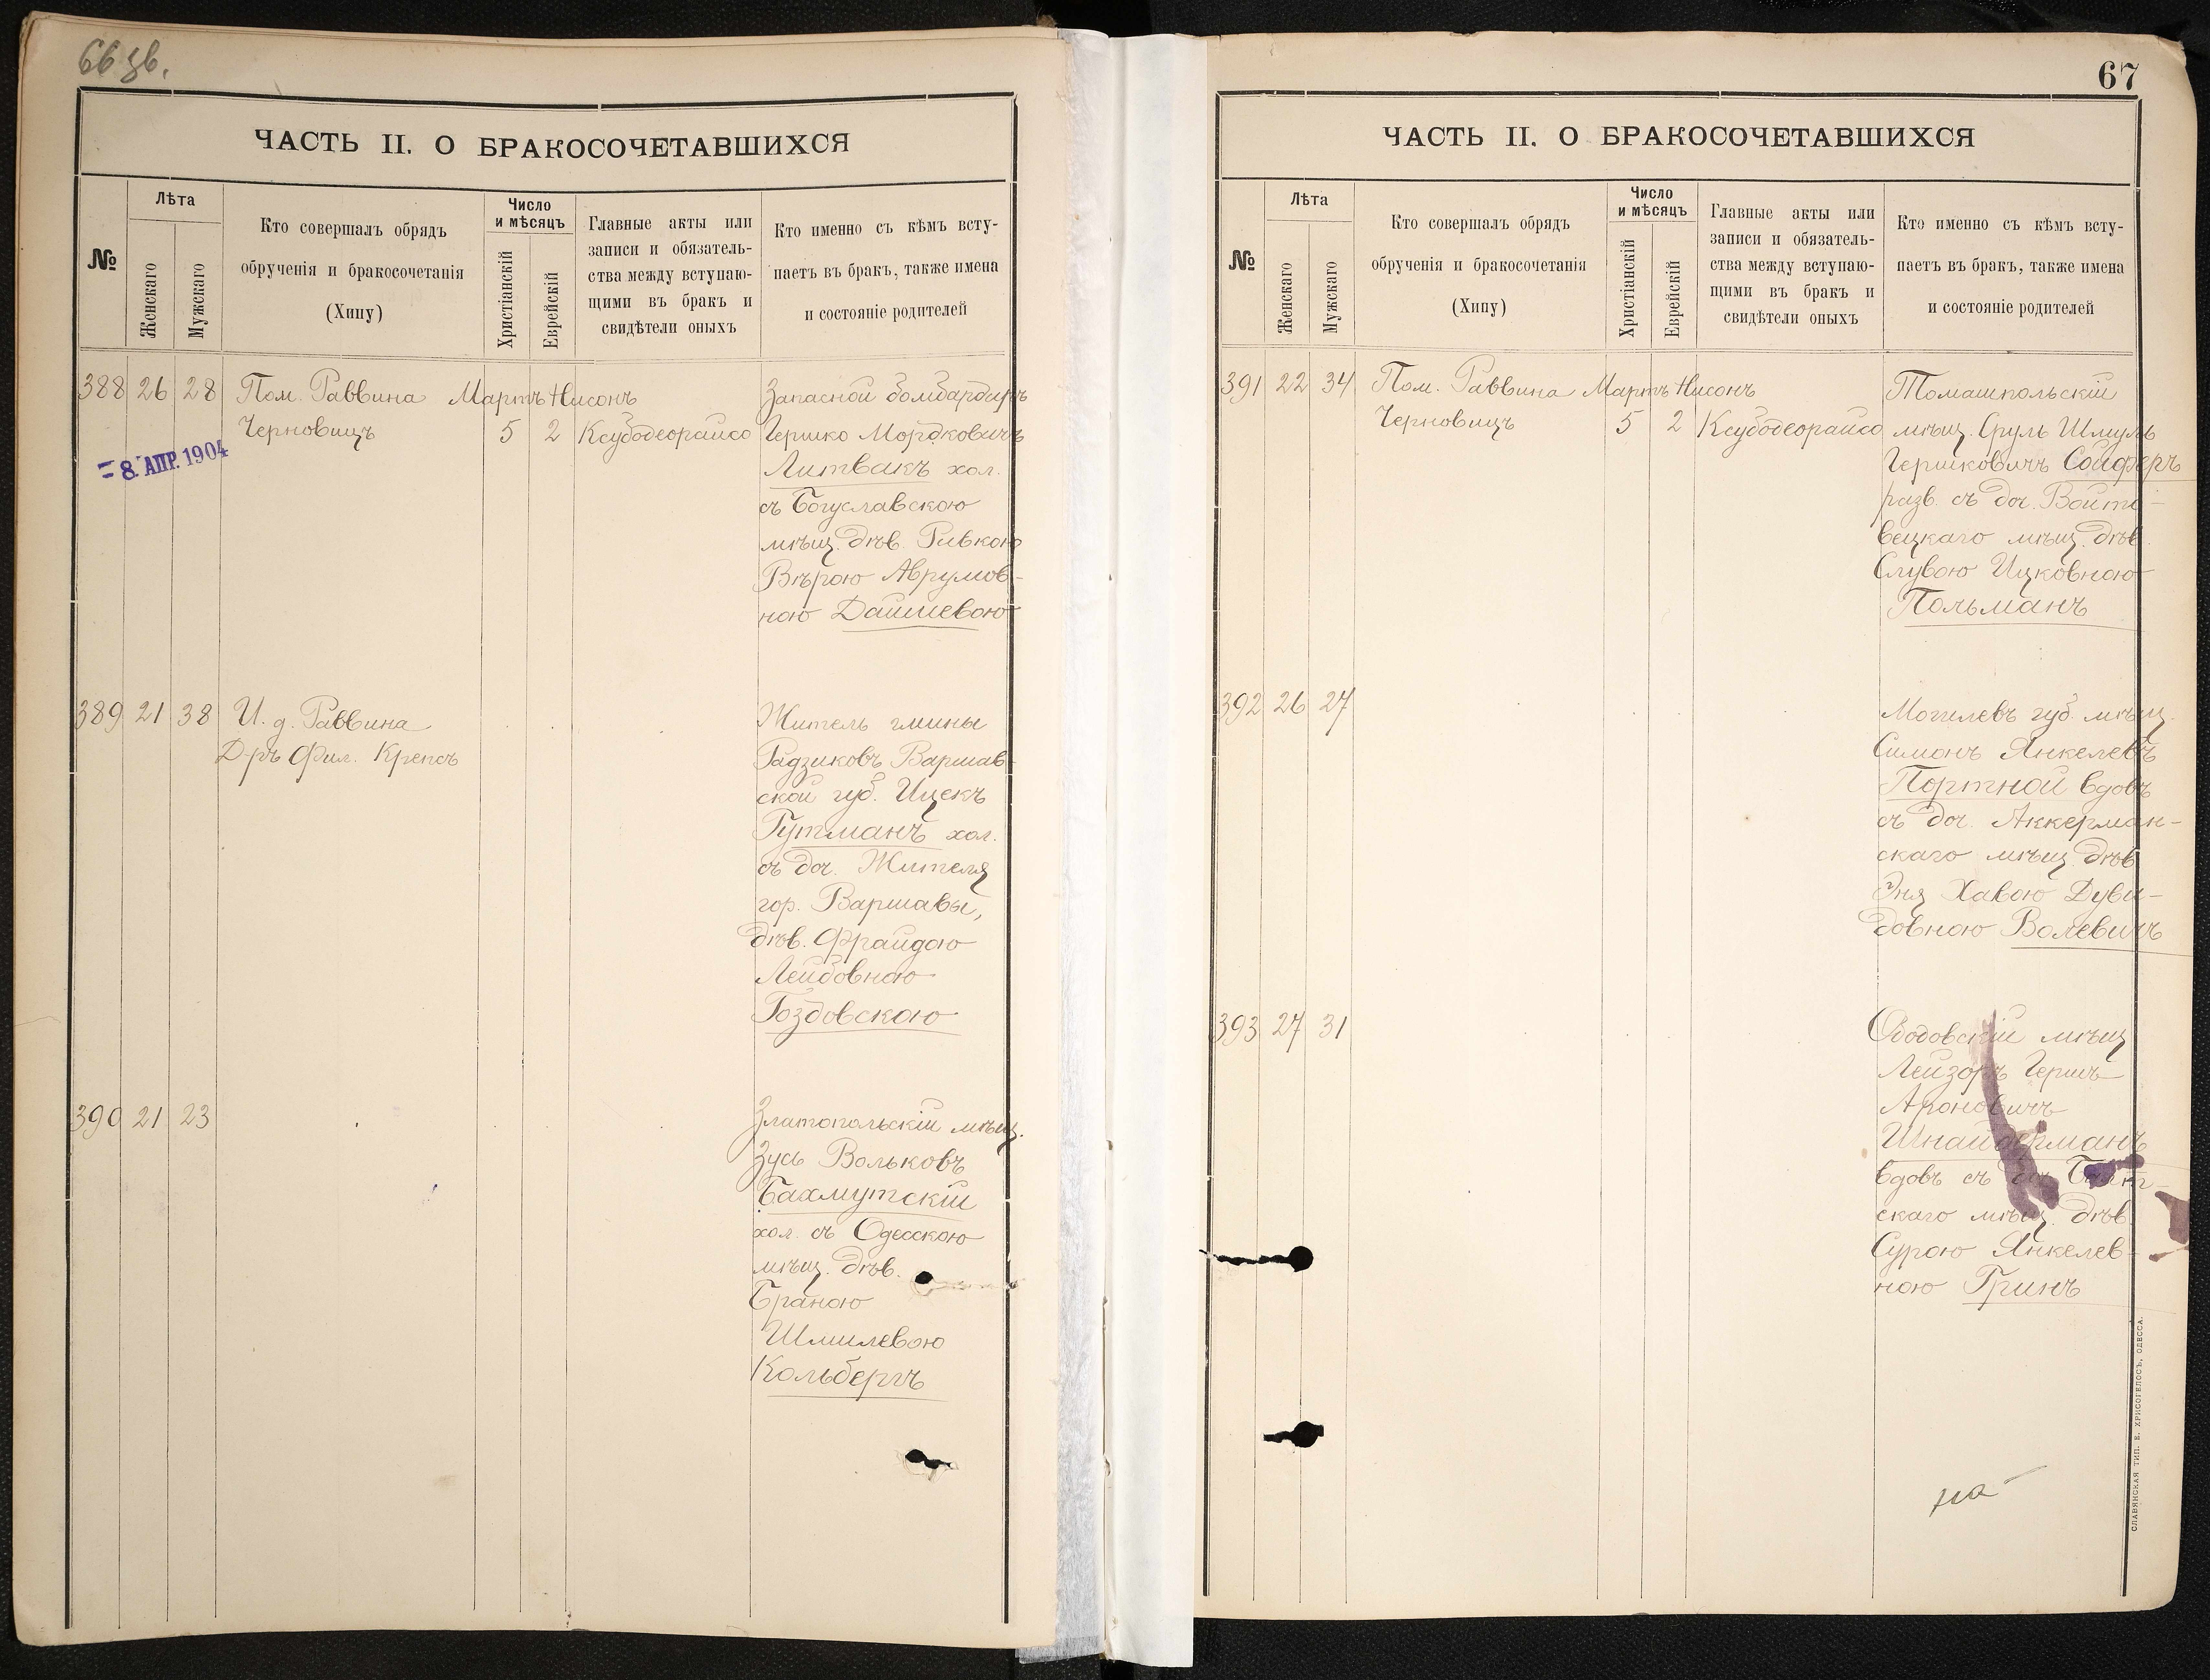 66 зв.
ЧАСТЬ II. О БРАКОСОЧЕТАВШИХСЯ
№
Лѣта
Женскаго
Мужскаго
Кто совершалъ обрядъ
обрученія и бракосочетанія
(Хипу)
Число
и мѣсяцъ
Христіанскій
Еврейскій
Главные акты или
записи и обязатель-
ства между вступаю-
щими въ бракъ и
свидѣтели оныхъ
Кто именно съ кѣмъ всту-
паетъ въ бракъ, также имена
и состояніе родителей
388 26 28 Пом. Раввина Мартъ Нисонъ
Черновицъ 5 2 Ксубодеорайсо
8. АПР. 1904
Запасной бомбардиръ
Гершко Мордковичъ
Литвакъ хол.
съ Богуславскою
мѣщ. дѣв. Ривкою
Вѣрою Аврумов-
ною Дашевою
389 21 38 И. д. Раввина
Д-ръ Фил. Крепсъ
Житель гмины
Радзиковъ Варшав-
ской губ. Ицекъ
Гутманъ хол.
съ доч. Жителя
гор. Варшавы,
дѣв. Фрайдою
Лейбовною
Гоздовскою
390 21 23
Златопольскій мѣщ.
Зусь Вольковъ
Бахмутскій
хол. съ Одесскою
мѣщ. дѣв.
Браною
Шмилевою
Кольбергъ
67
ЧАСТЬ II. О БРАКОСОЧЕТАВШИХСЯ
№
Лѣта
Женскаго
Мужскаго
Кто совершалъ обрядъ
обрученія и бракосочетанія
(Хипу)
Число
и мѣсяцъ
Христіанскій
Еврейскій
Главные акты или
записи и обязатель-
ства между вступаю-
щими въ бракъ и
свидѣтели оныхъ
Кто именно съ кѣмъ всту-
паетъ въ бракъ, также имена
и состояніе родителей
391 22 34 Пом. Раввина Мартъ Нисонъ
Черновицъ 5 2 Ксубодеорайсо
Томашпольскій
мѣщ. Сруль Шмуль
Гершковичъ Сойферъ
разв. съ доч. Войто-
вецкаго мѣщ. дѣв.
Слувою Ицковною
Польманъ
392 26 27
Могилевъ губ. мѣщ.
Симонъ Янкелевъ
Портной вдовъ
съ доч. Аккерман-
скаго мѣщ. дѣв
Эня Хавою Дуви-
довною Волевичъ
393 27 31
Ободовскій мѣщ
Лейзоръ Гершъ
Ароновичъ
Шнайдерманъ
вдовъ съ доч.
скаго мѣщ. дѣв.
Сурою Янкелев-
ною Гринъ
на
СЛАВЯНСКАЯ ТИП. Е. ХРИСОГЕЛОСЪ, ОДЕССА.